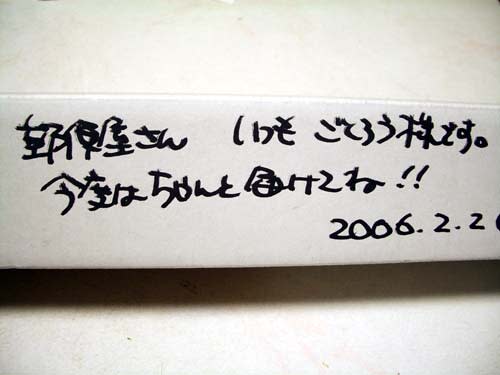 郵便屋さん いつも ごくろう様です。
今度はちゃんと届けてね!!
2006.2.2